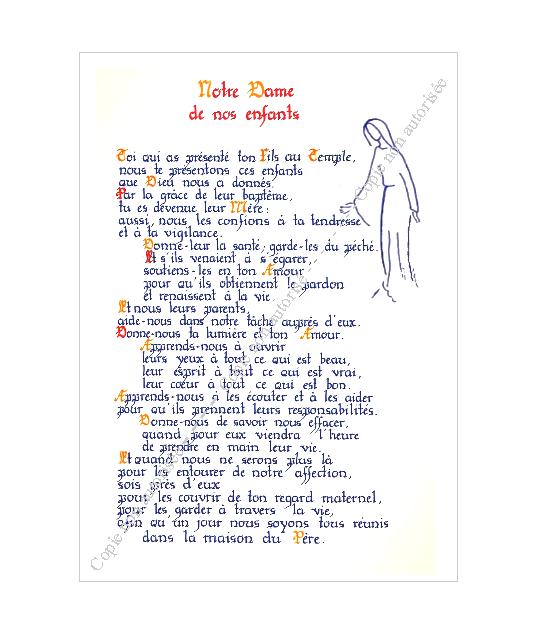 Notre Dame
de nos enfants
Toi qui as présenté ton Fils au Temple,
nous te présentons ces enfants
que Dieu nous a donnés.
Par la grâce de leur baptême,
tu es devenue leur Mère :
aussi, nous les confions à ta tendresse
et à ta vigilance.
Donne-leur la santé, garde-les du péché.
Et s'ils venaient à s'égarer,
soutiens-les en ton Amour
pour qu'ils obtiennent le pardon
et renaissent à la vie.
Et nous leurs parents,
aide-nous dans notre tâche auprès d'eux.
Donne-nous ta lumière et ton Amour.
Apprends-nous à ouvrir
leurs yeux à tout ce qui est beau,
leur esprit à tout ce qui est vrai,
leur cœur à tout ce qui est bon.
Apprends-nous à les écouter et à les aider
pour qu'ils prennent leurs responsabilités.
Donne-nous de savoir nous effacer,
quand pour eux viendra l'heure
de prendre en main leur vie.
Et quand nous ne serons plus là
pour les entourer de notre affection,
sois près d'eux
pour les couvrir de ton regard maternel,
pour les garder à travers la vie,
afin qu'un jour nous soyons tous réunis
dans la maison du Père.
Copie non autorisée - - - - - Copie non autorisée - - - - - Copie non autorisée